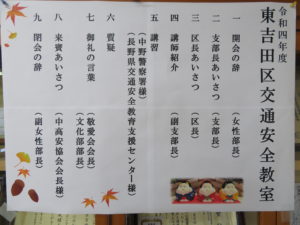 令和四年度
東吉田区交通安全教室
一 開会の辞 (女性部長)
二 支部長あいさつ (支部長)
三 区長あいさつ (区長)
四 講師紹介 (副支部長)
五 講習
(中野警察署様)
(長野県交通安全教育支援センター様)
六 質疑
七 御礼の言葉 (敬愛会会長)
(文化部部長)
八 来賓あいさつ (中高安協会会長様)
九 閉会の辞 (副女性部長)